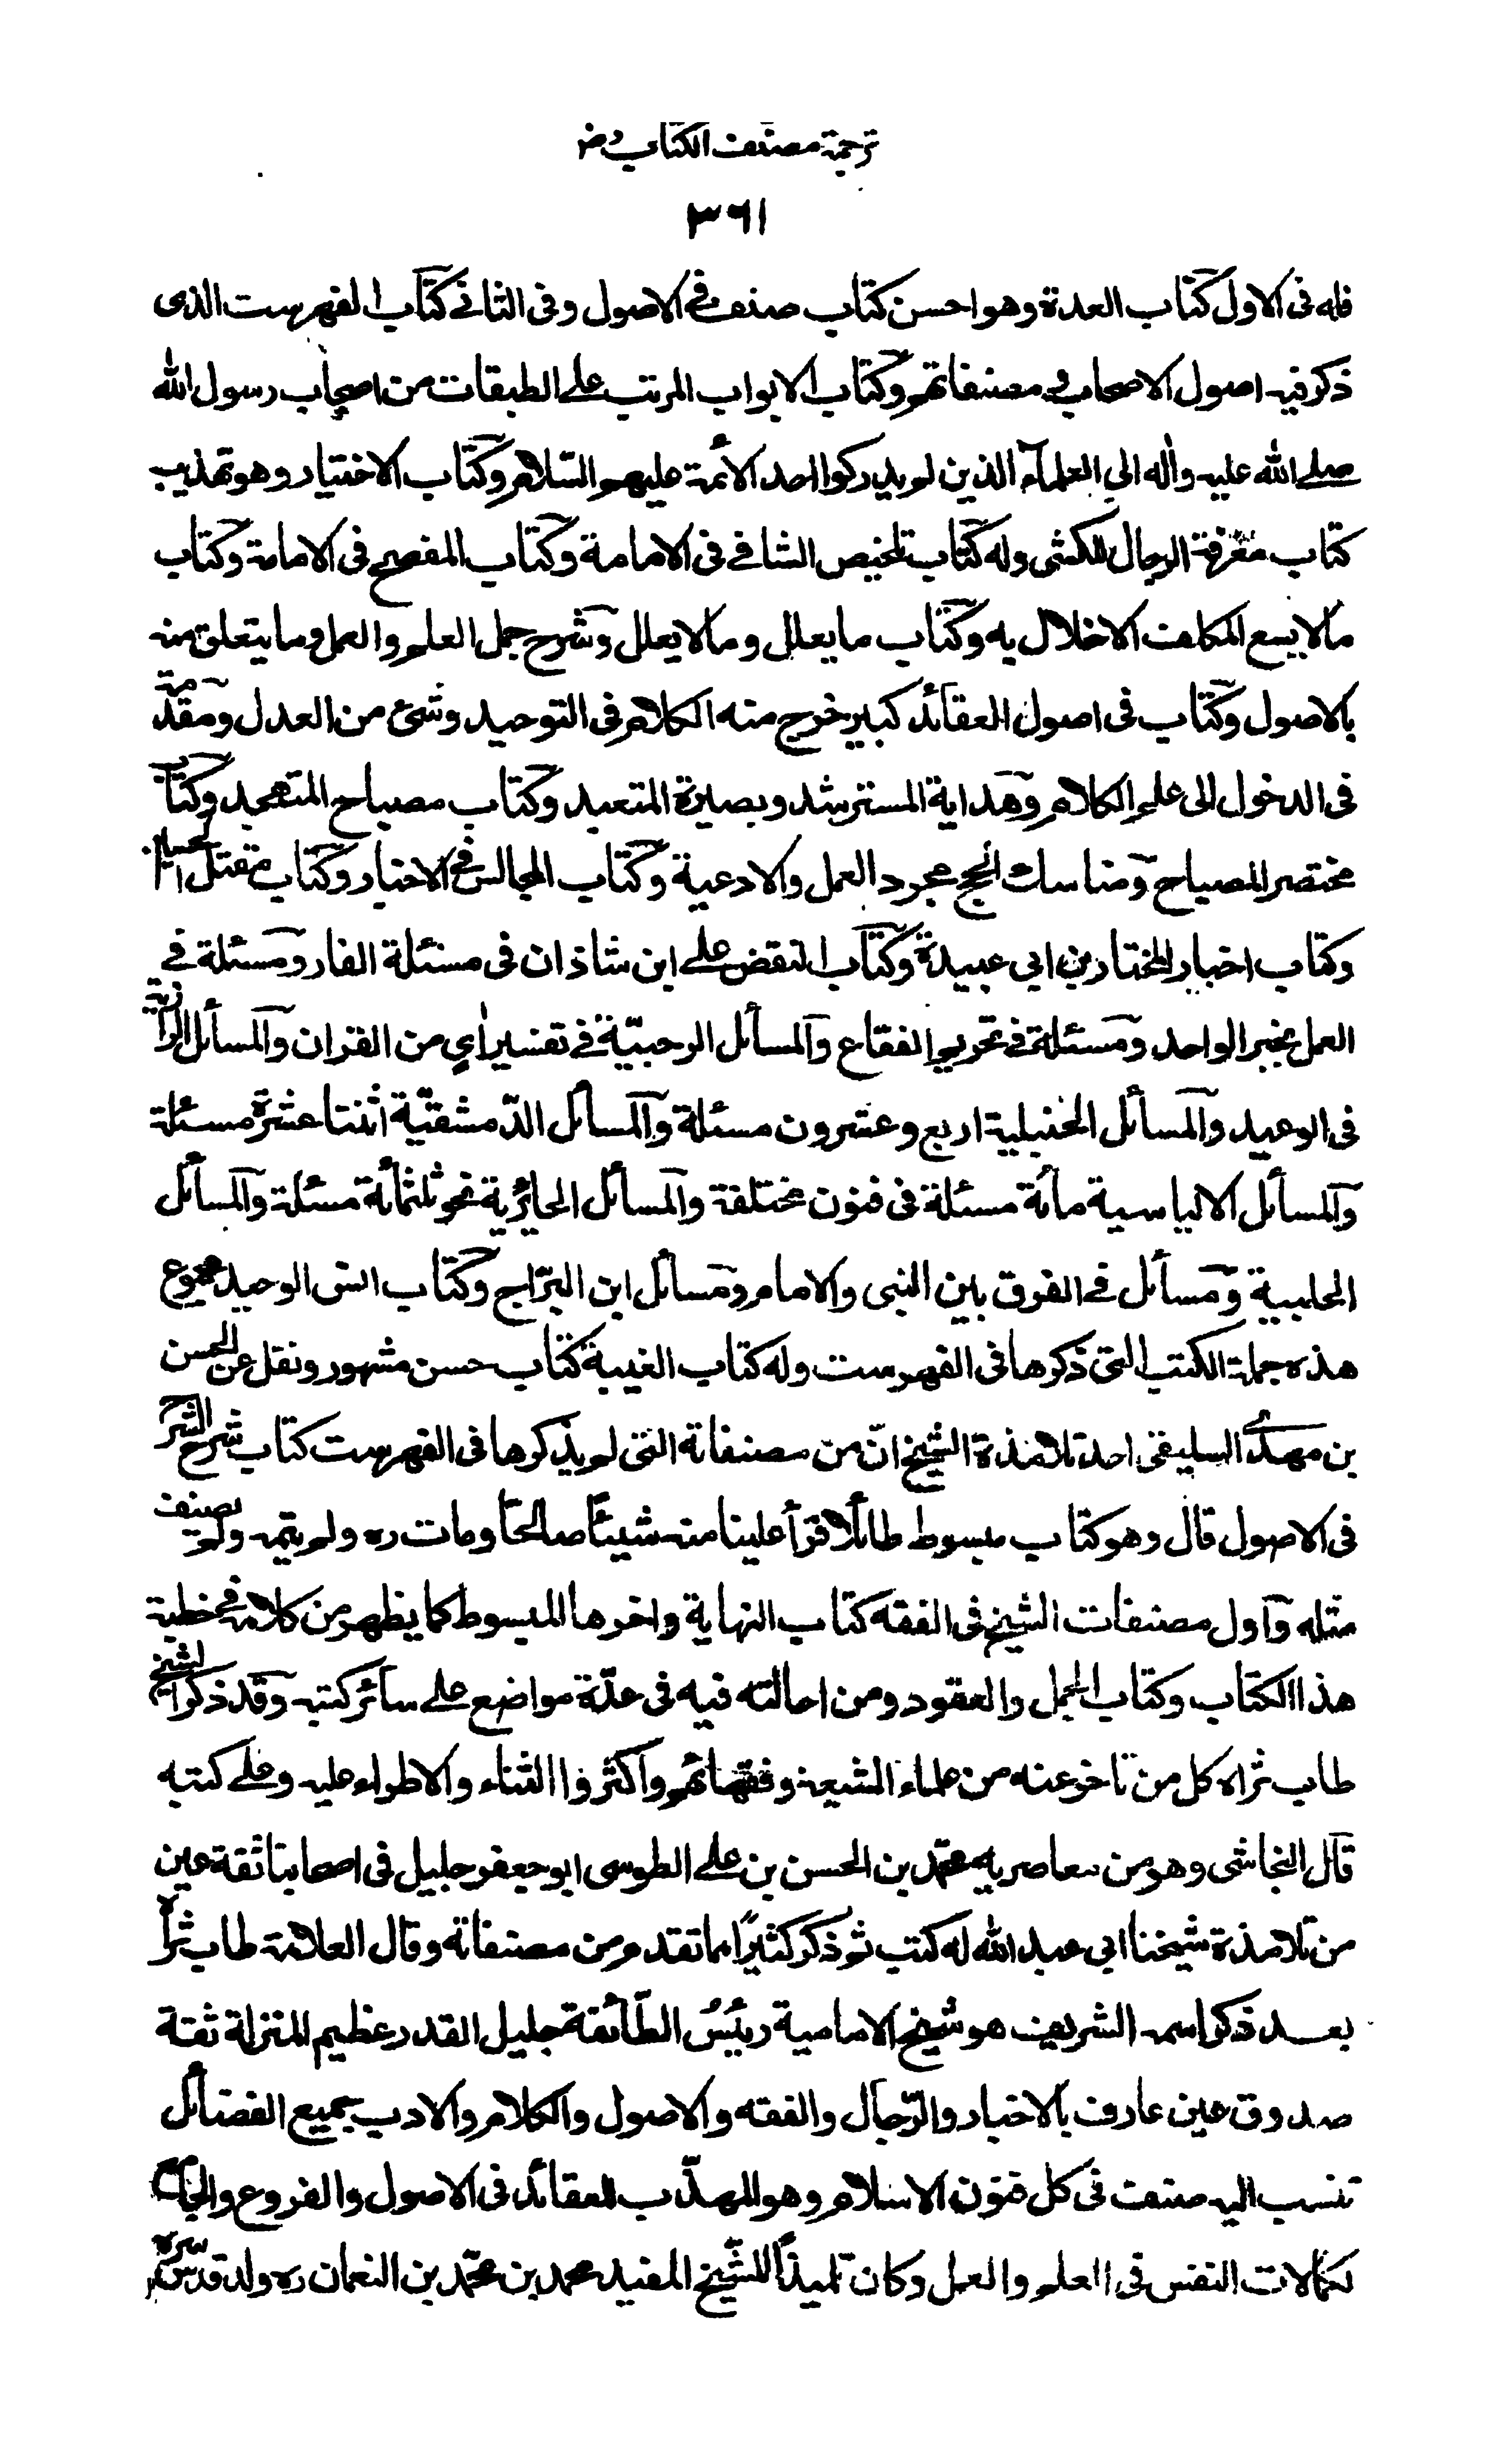 ترجمة مصنف الكتاب رض
٣٦١
فله فى الاول كتاب العدة وهو احسن كتاب صنف في الاصول وفى الثاني كتاب الفهرست الذى
ذكر فيه اصول الاصحاب و مصنفاتهم وكتاب الابواب المرتب على الطبقات من اصحاب رسول الله
صلى الله عليه واٰله الى العلمآء الذين لم يدركوا احد الأئمة عليهم السّلام وكتاب الاختيار وهو تهذيب
كتاب معرفة الرجال للكشى وله كتاب تلخيص الشافي فى الامامة وكتاب المفصح فى الامامة وكتاب
مالا يسع المكلف الاخلال به وكتاب ما يعلل وما لا يعلل وشرح جمل العلم والعمل وما يتعلق منه
بالاصول وكتاب فى اصول العقائد كبير خرج منه الكلام فى التوحيد وشئ من العدل ومقدّمة
فى الدخول الى علم الكلام وهداية المسترشد وبصيرة المتعبد وكتاب مصباح المتهجد وكتاب
مختصر المصباح ومناسك الحج مجرد العمل والادعية وكتاب المجالس في الاخبار وكتاب مقتل الحسين
وكتاب اخبار المختار بن ابي عبيدة وكتاب النقض على ابن شاذان فى مسئلة الغار ومسئلة في
العمل بخبر الواحد ومسئلة في تحريم الفقاع والمسائل الرحبيّة في تفسير اٰي من القران والمسائل الرازية
فى الوعيد والمسائل الحنبلية اربع وعشرون مسئلة والمسائل الدّمشقيّة اثنتا عشرة مسئلة
والمسائل الالياسية مائة مسئلة فى فنون مختلفة والمسائل الحايرية نحو ثلثمائة مسئلة والمسائل
الحلبية ومسائل في الفرق بين النبى والامام ومسائل ابن البرّاج وكتاب انس الوحيد مجموع
هذه جملة الكتب التى ذكرها فى الفهرست وله كتاب الغيبة كتاب حسن مشهور ونقل عن الحسن
بن مهدى السليقى احد تلامذة الشيخ انّ من مصنفاته التى لم يذكرها فى الفهرست كتاب شرح الشرح
فى الاصول قال وهو كتاب مبسوط طائلا قرأ علينا منه شيئًا صالحًا ومات ره ولم يتمه ولم يصنف
مثله واول مصنفات الشيخ فى الفقه كتاب النهاية واخرها المبسوط كما يظهر من كلامه في خطبة
هذا الكتاب وكتاب الجمل والعقود ومن احالته فيه فى عدّة مواضع على سائر كتبه وقد ذكر الشيخ
طاب ثراه كل من تاخر عنه من علماء الشيعة وفقهائهم واكثروا الثناء والاطراء عليه وعلى كتبه
قال النجاشى وهو من معاصريه محمّد بن الحسن بن على الطوسى ابو جعفر جليل فى اصحابنا ثقة عين
من تلامذة شيخنا ابى عبد الله له كتب ثم ذكر كثيرًا مما تقدم من مصنفاته وقال العلامة طاب ثراه
بعد ذكر اسمه الشريف هو شيخ الامامية رئيسُ الطّائفة جليل القدر عظيم المنزلة ثقة
صدوق عين عارف بالاخبار والرّجال والفقه والاصول والكلام والادب بجميع الفضائل
تنسب اليه صنف فى كل فنون الاسلام وهو المهذّب للعقائد فى الاصول والفروع والجامع
لكمالات النفس فى العلم والعمل وكان تلميذًا للشّيخ المفيد محمد بن محمّد بن النعمان ره ولد قدّس سره